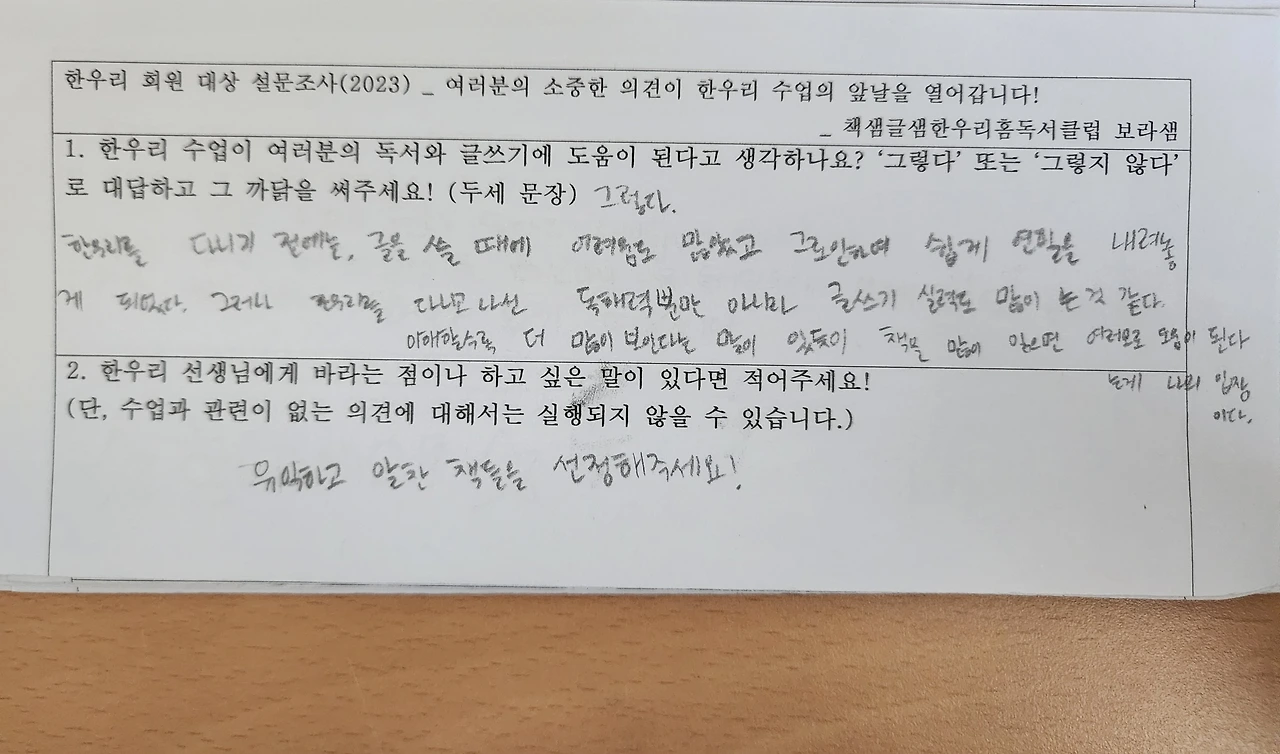 한우리 회원 대상 설문조사(2023) _ 여러분의 소중한 의견이 한우리 수업의 앞날을 열어갑니다!
_ 책샘글샘한우리홈독서클럽 보라샘
1. 한우리 수업이 여러분의 독서와 글쓰기에 도움이 된다고 생각하나요? ‘그렇다’ 또는 ‘그렇지 않다’
로 대답하고 그 까닭을 써주세요! (두세 문장) 그렇다.
한우리를 다니기 전에는, 글을 쓸 때에 어려움도 많았고 그로인하여 쉽게 연필을 내려놓
게 되었다. 그러나 한우리를 다니고 나선 독해력뿐만 아니라 글쓰기 실력도 많이 는 것 같다.
더 많이 보인다는 말이 있듯이 책을 많이 읽으면 여러모로 도움이 된다
는게 나의 입장
이다.
2. 한우리 선생님에게 바라는 점이나 하고 싶은 말이 있다면 적어주세요!
(단, 수업과 관련이 없는 의견에 대해서는 실행되지 않을 수 있습니다.)
유익하고 알찬 책들을 선정해주세요!